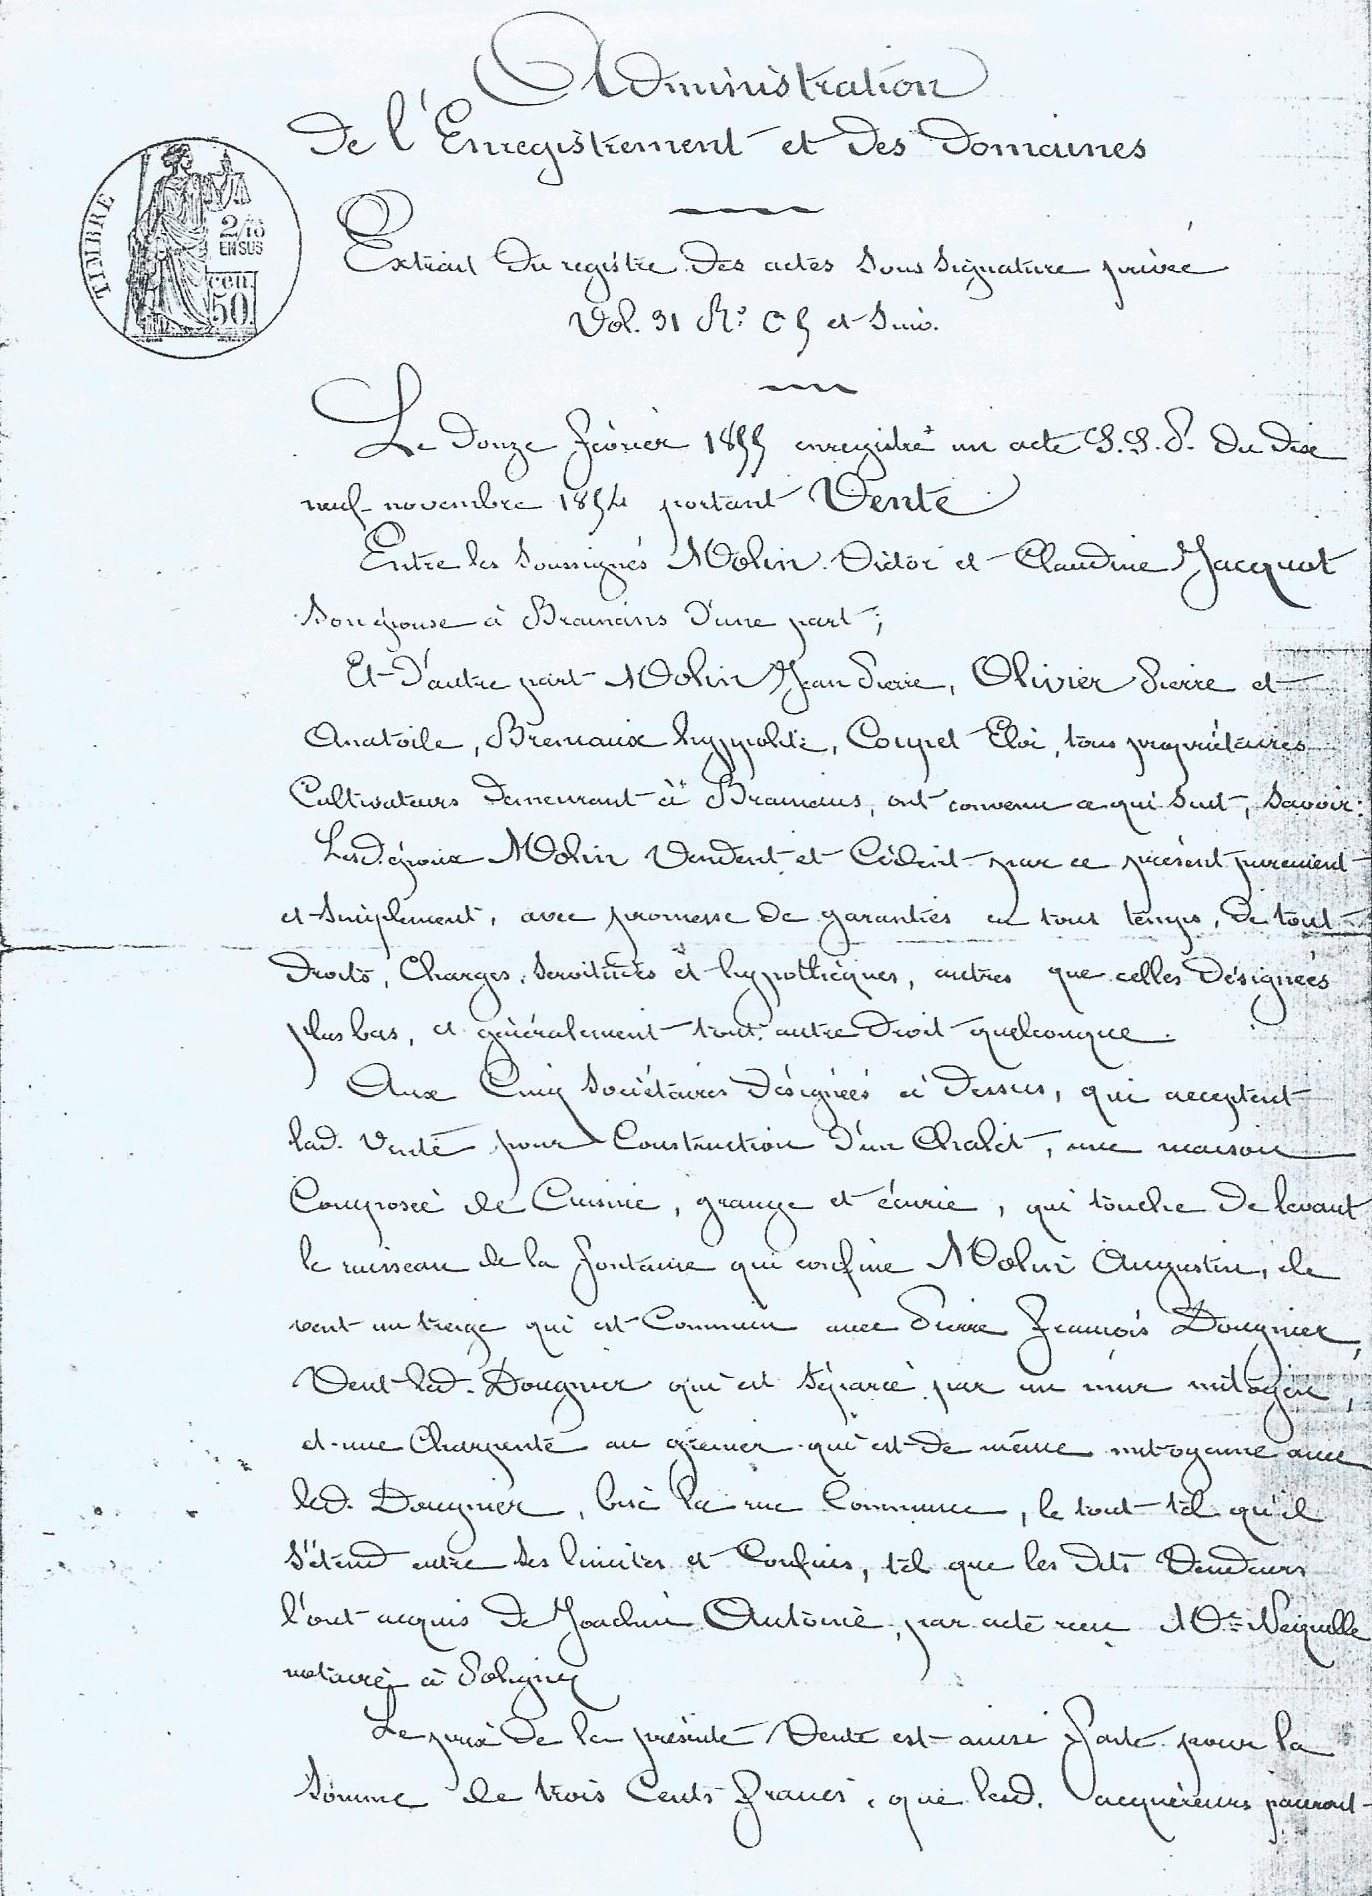 Administration
de l'Enregistrement et des Domaines
TIMBRE
2/10
EN SUS
cen.
50.
Extrait du registre des actes sous signature privée
Vol. 31 et suiv.
Le douze février 1855 enregistré un acte S.S.P. du dix
neuf novembre 1854 portant Vente
Entre les soussignés Molin Victor et Claudine Jacquot
son épouse à Brainans d'une part;
Et d'autre part Molin Jean Pierre, Olivier Pierre et
Anatoile, Bremaux hyppolite, Coupet Eloi, tous propriétaires
Cultivateurs demeurant à Brainans, ont convenu ce qui suit, savoir:
Lesd. époux Molin vendent et cèdent par ce présent purement
et simplement, avec promesse de garanties en tout temps, de tout
droits, charges, servitudes et hypothèques, autres que celles désignées
plus bas, et généralement tout autre droit quelconque.
Aux Cinq Sociétaires désignés ci dessus, qui acceptent
lad. vente pour Construction d'un Chalet, une maison
Composée de Cuisine, grange et écurie, qui touche de levant
le ruisseau de la fontaine qui confine Molin Augustin, de
vent un treige qui est Commun avec Pierre François Dougnier,
Vent led. Dougnier qui est séparée par un mur mitoyen,
et une Charpente au grenier qui est de même mitoyenne avec
led. Dougnier, bise la rue Commune, le tout tel qu'il
s'étend entre ses limites et Confins, tel que les dits Vendeurs
l'ont acquis de Joachin Antoine, par acte reçu Me
notaire à Poligny
Le prix de la présente Vente est ainsi faite pour la
somme de trois Cents francs, que lesd. acquéreurs pairont